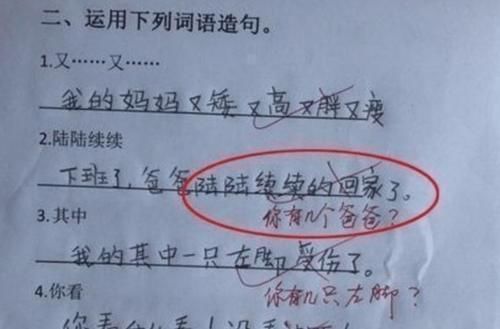 二、运用下列词语造句。
1.又……又……
我的妈妈又矮又高又胖又瘦
2.陆陆续续
下班了,爸爸陆陆续续的回家了。
你有几个爸爸?
3.其中
我的其中一只左脚受伤了。
你有几只左脚?
4.你看